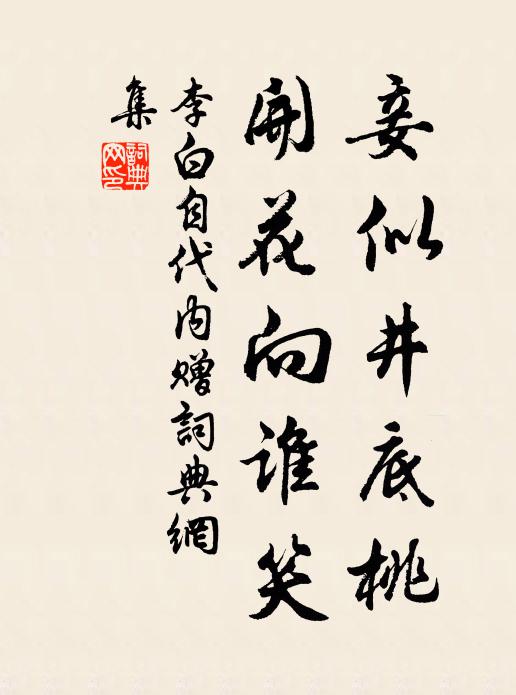 妾似井底桃
開花向誰笑
李白自代内贈詞典網
集
詞典
网印